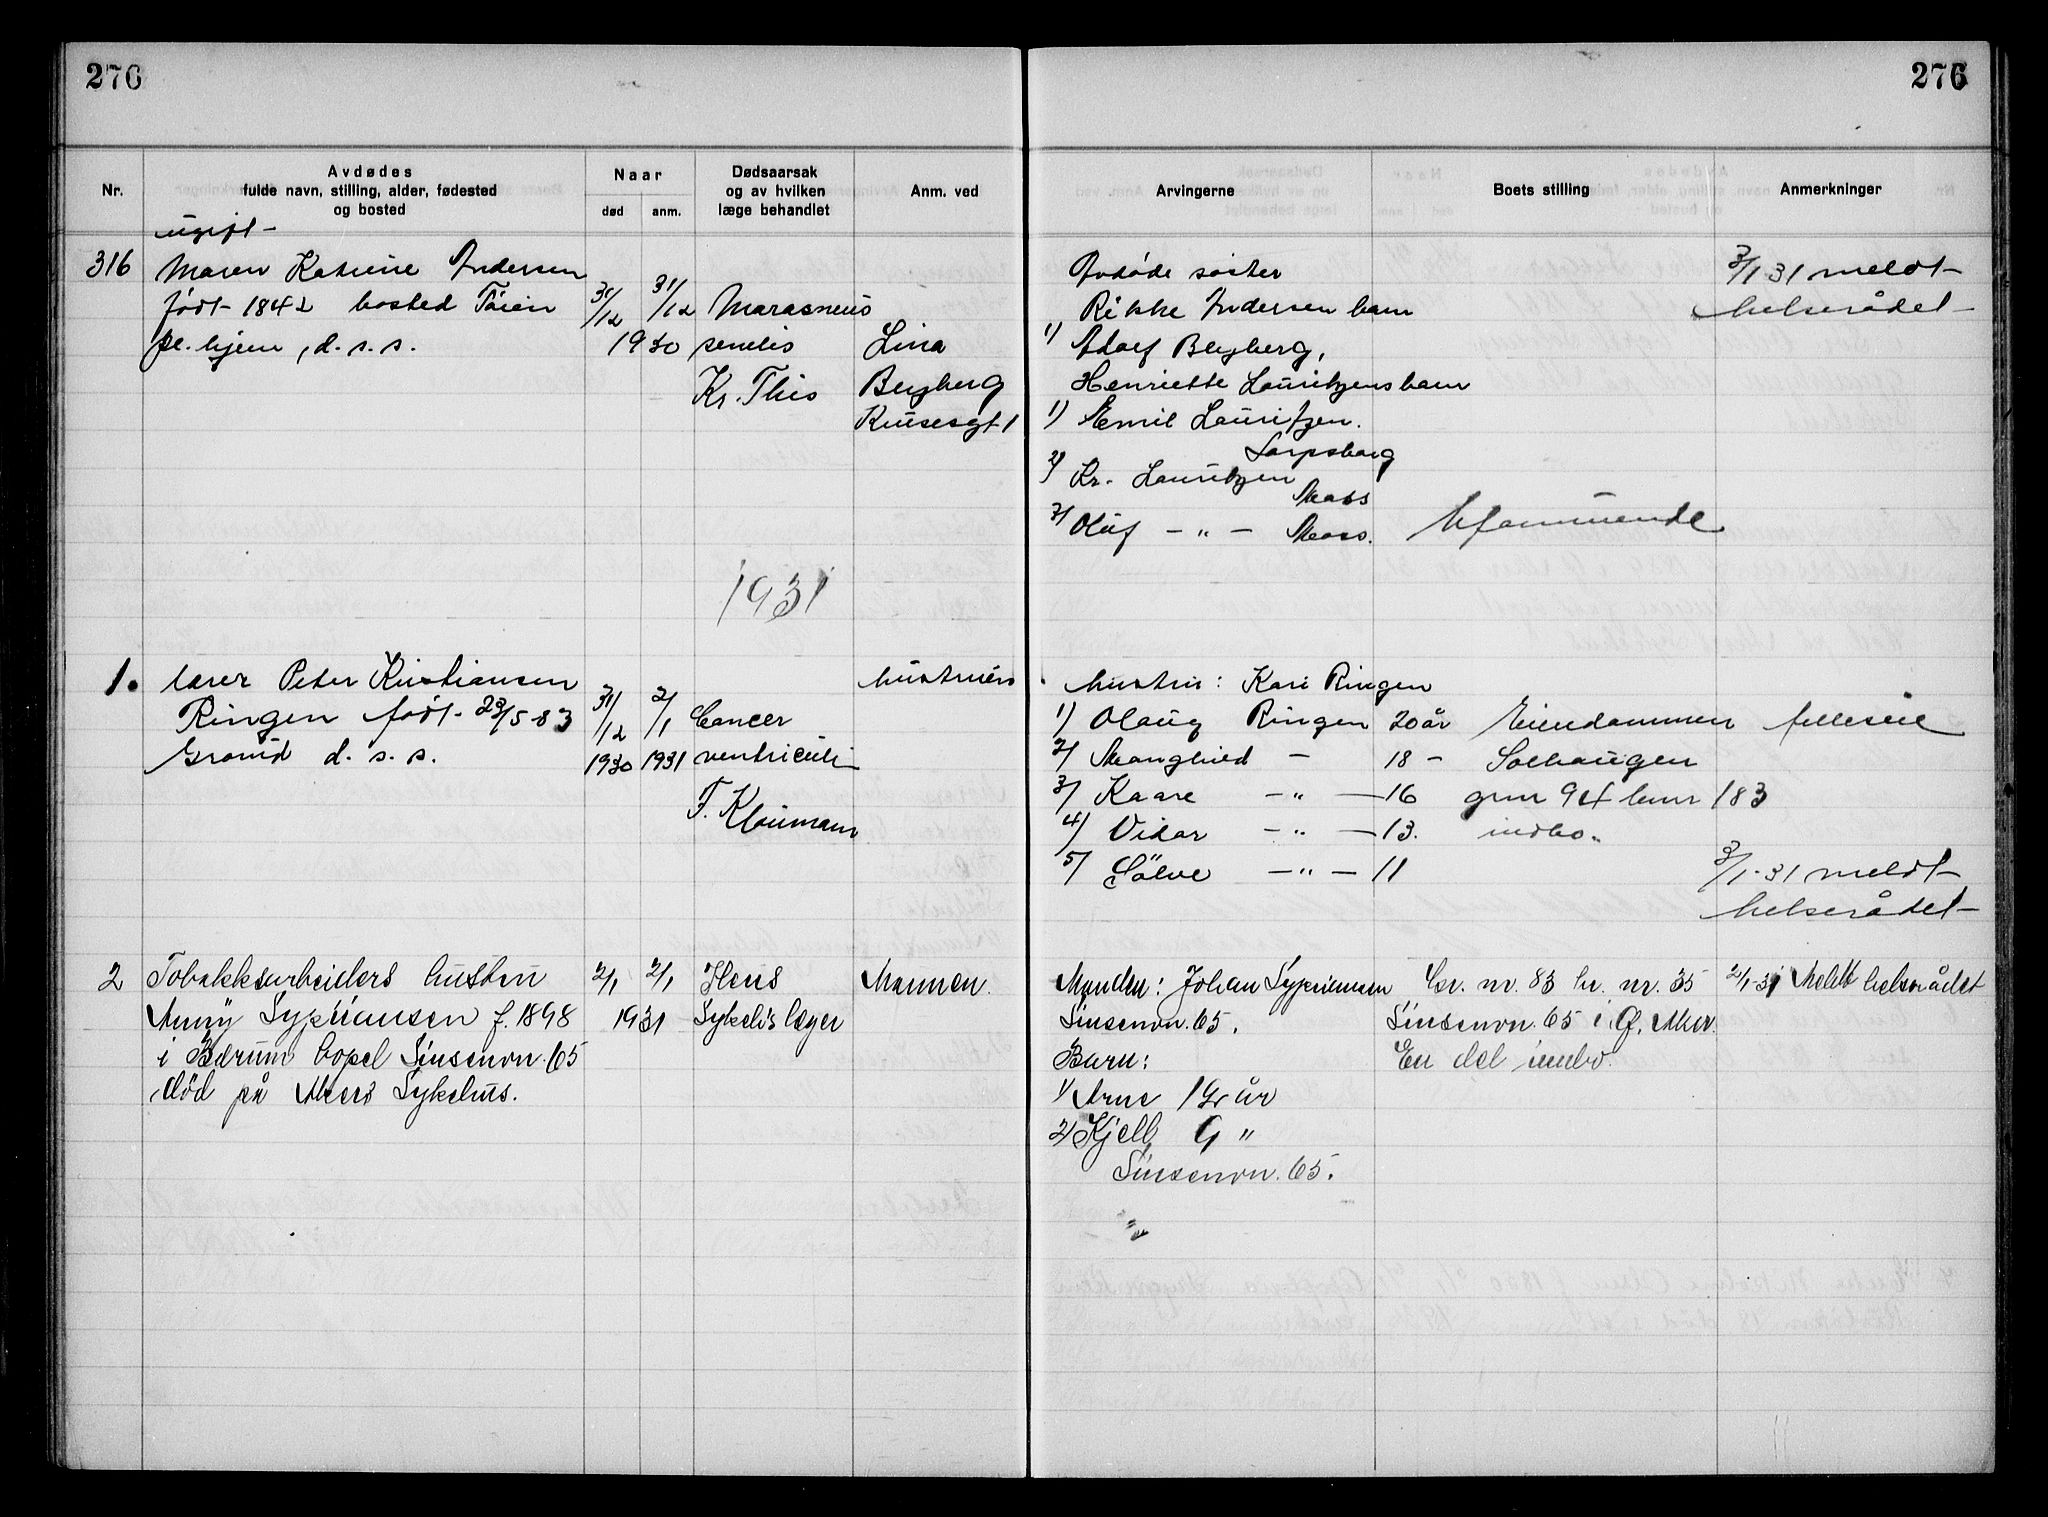 276
276
Nr.
Avdødes
fulde navn, stilling, alder, fødested
og bosted
Naar
død
anm.
Dødsaarsak
og av hvilken
læge behandlet
Anm. ved
Arvingerne
Boets stilling
Anmerkninger
ugift
316
Maren Katrine Andersen
født 1842 bosted Tøien
pl. hjem, d. s. s.
31/12
31/12
1930
Marasmus
senilis
Kr. This
Lina
Bergberg
Avdøde søster
Rikke Andersen barn
1) Adolf Bergberg,
Henriette Lauritzens barn
1) Emil Lauritzen.
Sarpsborg
2) Kr. Lauritzen
Moss
3) Oluf — " — Moss.
Uformuende
3/1 31 meldt
helserådet
1931
1.
Lærer Peter Kristiansen
Ringen født 23/5 83
Grorud d. s. s.
31/12
1930
2/1
1931
Cancer
ventriculi
F. Klaumann
hustruen
hustru: Kari Ringen
1) Olaug Ringen 20 år
2) Manghild — 18 —
3) Kaare — " — 16
4) Vidar — " — 13.
5) Sölve — " — 11
Eiendommen
Solhaugen
gnr 94 bnr 183
indbo.
felleseie
3/1-31 meldt
helserådet
2
Tobakksarbeiders hustru
Anny Sypriansen f. 1898
i Bærum bopel Sinsenvn. 65
död på Akers Sykehus.
2/1
2/1
1931
Ileus
Sykeh's læger
Mannen.
Manden: Johan Sypriansen
Sinsenvn. 65.
Barn:
1) Arne 12 år
2) Kjell 9 "
Sinsenvn. 65.
Gr. nr. 83 br. nr. 35
Sinsenvn. 65 i Ø. Aker.
En del innbo.
2/1-31 Meldt helserådet